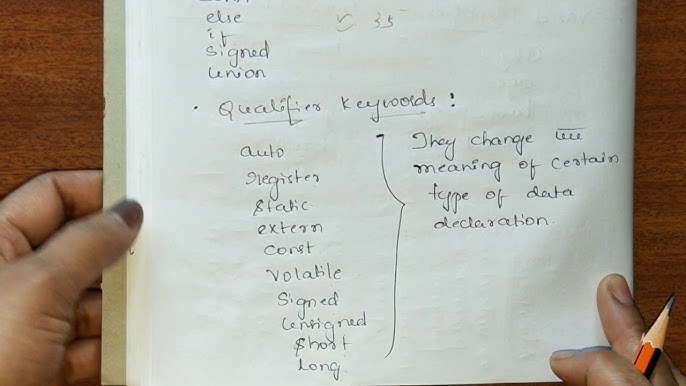 else
if
Signed
Union
35
• Qualifier Keywords :
auto
register
Static
extern
Const
Volatile
Signed
Unsigned
Short
Long
They change
meaning of certain
type of data
declaration.